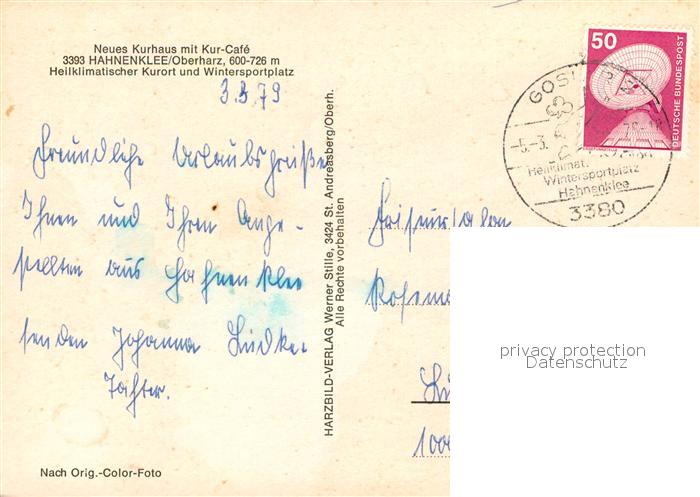 Neues Kurhaus mit Kur-Café
3393 HAHNENKLEE/Oberharz, 600-726 m
Heilklimatischer Kurort und Wintersportplatz
3.3.79
Freundliche Urlaubsgrüße
Ihnen und Ihren Ange-
stellten aus Hahnenklee
senden Johanna Lüdke.
Nach Orig.-Color-Foto
HARZBILD-VERLAG Werner Stille, 3424 St. Andreasberg/Oberh.
Alle Rechte vorbehalten
50
DEUTSCHE BUNDESPOST
-5.-3.
Heilklimat.
Wintersportplatz
Hahnenklee
3380
Frisiursalon
privacy protection
Datenschutz